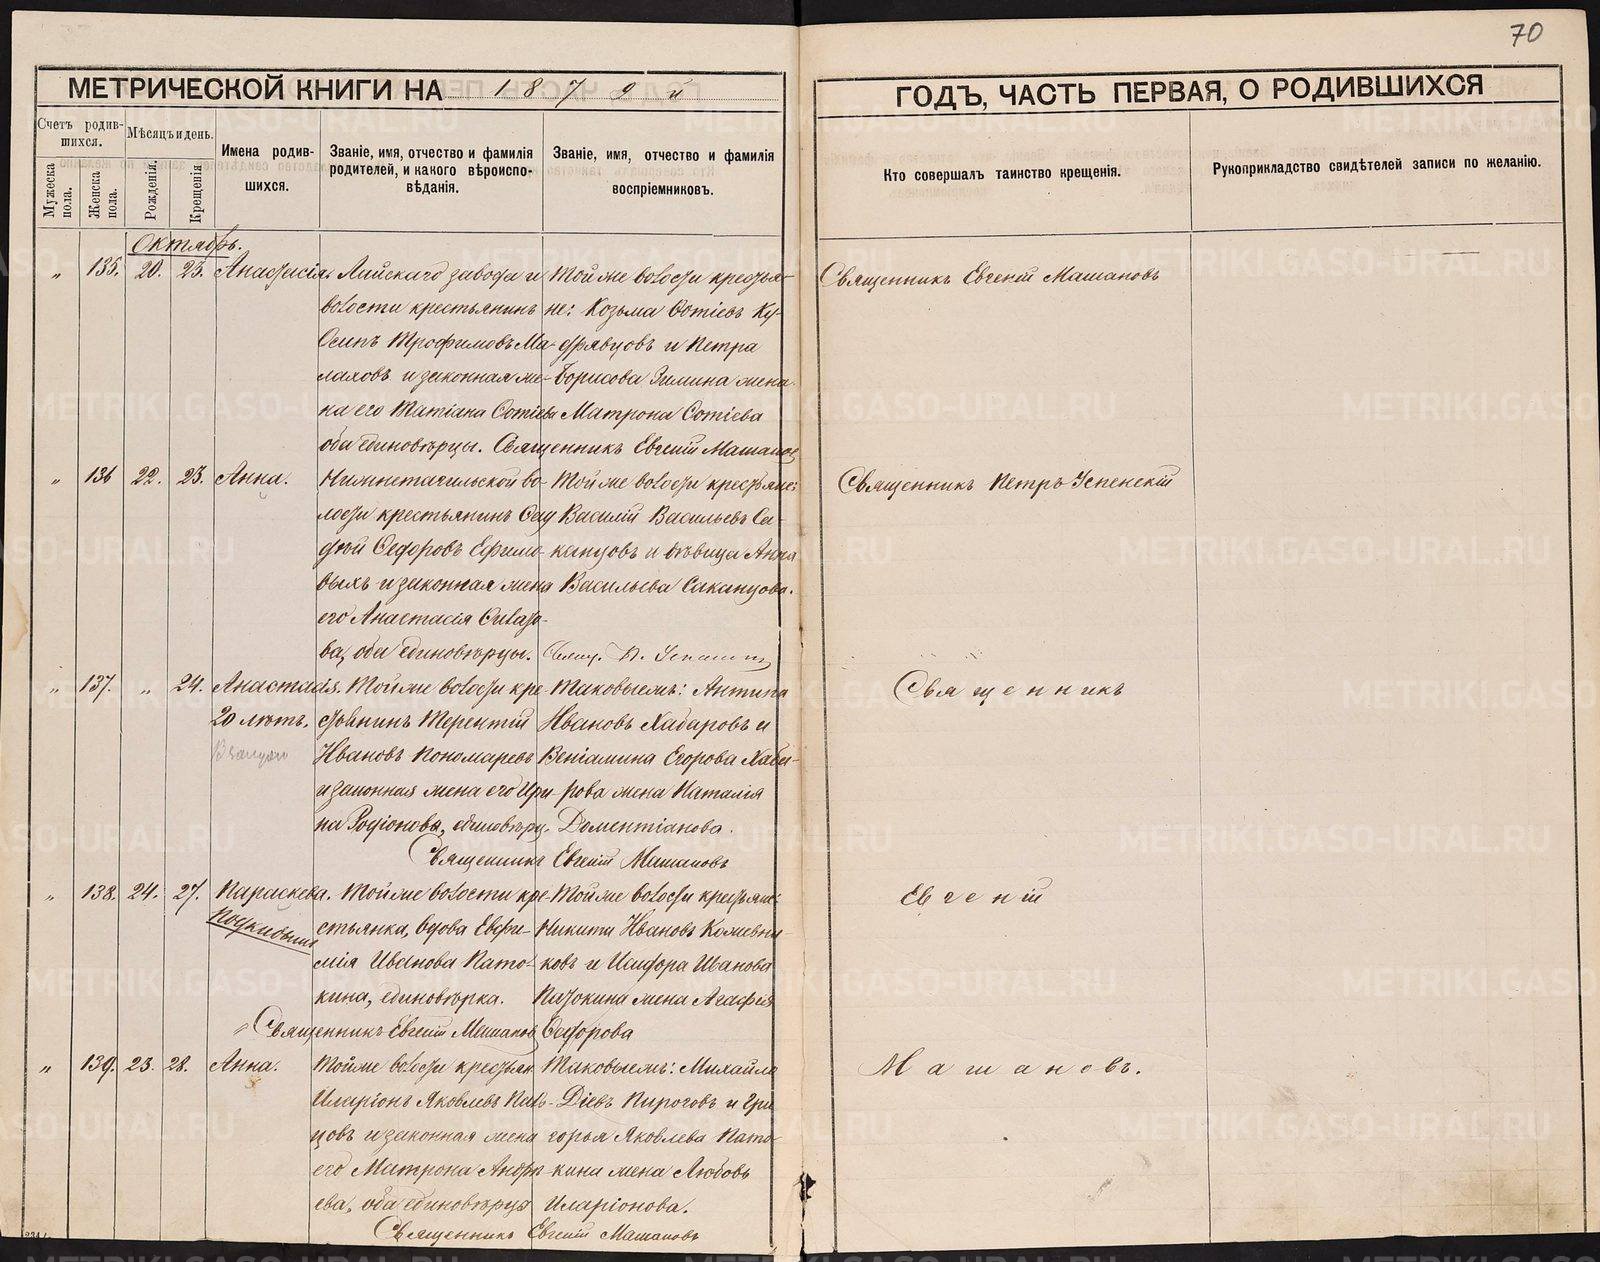 70
МЕТРИЧЕСКОЙ КНИГИ НА 1879 й
ГОДЪ, ЧАСТЬ ПЕРВАЯ, О РОДИВШИХСЯ
Счетъ родив-
шихся.
Мужеска пола.
Женска пола.
Мѣсяцъ и день.
Рожденія.
Крещенія
Имена родив-
шихся.
Званіе, имя, отчество и фамилія
родителей, и какого вѣроиспо-
вѣданія.
Званіе, имя, отчество и фамилія
воспріемниковъ.
Кто совершалъ таинство крещенія.
Рукоприкладство свидѣтелей записи по желанію.
Октябрь.
" 135. 20. 23. Анастасія.
Лайскаго завода и
волости крестьянинъ
Осипъ Трофимовъ Ма-
лаховъ и законная же-
на его Татіана Сотіева
оба единовѣрцы.
Той же волости крестья-
не: Козьма Фотіевъ Ку-
дрявцовъ и Петра
Борисова Зимина жена
Матрона Сотіева
Священникъ Евгеній Машановъ
Священникъ Евгеній Машановъ
" 136 22. 23. Анна.
Нижнетагильской во-
лости крестьянинъ
Федоровъ Ефимо-
выхъ и законная жена
его Анастасія
ва, оба единовѣрцы.
Той же волости крестьяне:
Василій Васильевъ Са-
канцовъ и дѣвица Анна
Васильева Саканцова.
Свящ. П. Успенскій
Священникъ Петръ Успенскій
" 137. " 24. Анастасія.
20 лѣтъ.
Той же волости кре-
стьянинъ Терентій
Ивановъ Пономаревъ
и законная жена его Ири-
на Родіонова, единовѣрц.
Таковыежъ: Антипа
Ивановъ Хабаровъ и
Веніамина Егорова Хаба-
рова жена Наталія
Доментіанова.
Священникъ Евгеній Машановъ
Священникъ
" 138. 24. 27. Параскева.
Подкидышъ
Той же волости кре-
стьянка, вдова Евфи-
мія Иванова Пато-
кина, единовѣрка.
Той же волости крестьян:
Никита Ивановъ Кожевни-
ковъ и Исидора Иванова
Патокина жена Агафія
Федорова
Священникъ Евгеній Машановъ
Евгеній
" 139. 23. 28. Анна.
Той же волости крестьян.
Иларіонъ Яковлевъ
цовъ и законная жена
его Матрона Андре-
ева, оба единовѣрцы
Таковыежъ: Михайло
Діевъ Пироговъ и Гри-
горья Яковлева Пато-
кина жена Любовь
Иларіонова.
Священникъ Евгеній Машановъ
Машановъ.
METRIKI.GASO-URAL.RU